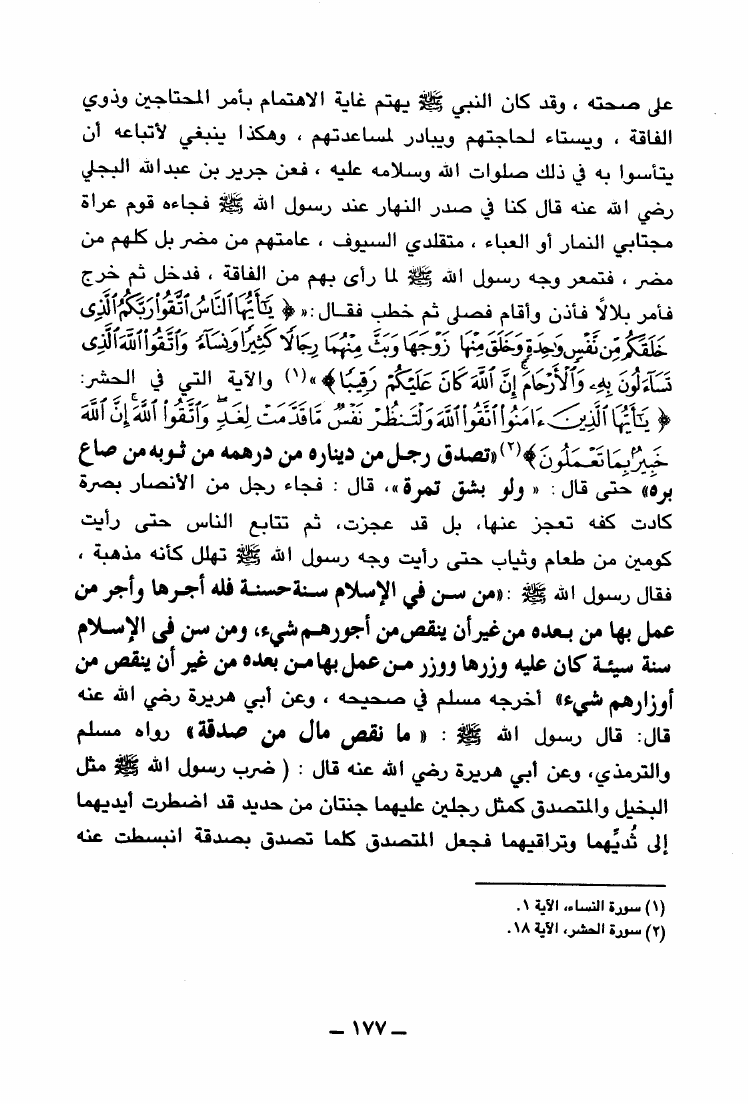 على صحته ، وقد كان النبي ﷺ يهتم غاية الاهتمام بأمر المحتاجين وذوي
الفاقة ، ويستاء لحاجتهم ويبادر لمساعدتهم ، وهكذا ينبغي لأتباعه أن
يتأسوا به في ذلك صلوات الله وسلامه عليه ، فعن جرير بن عبدالله البجلي
رضي الله عنه قال كنا في صدر النهار عند رسول الله ﷺ فجاءه قوم عراة
مجتابي النمار أو العباء ، متقلدي السيوف ، عامتهم من مضر بل كلهم من
مضر ، فتمعر وجه رسول الله ﷺ لما رأى بهم من الفاقة ، فدخل ثم خرج
فأمر بلالاً فأذن وأقام فصلى ثم خطب فقال :« ﴿ يَٰٓأَيُّهَا ٱلنَّاسُ ٱتَّقُوا۟ رَبَّكُمُ ٱلَّذِى
خَلَقَكُم مِّن نَّفْسٍ وَٰحِدَةٍ وَخَلَقَ مِنْهَا زَوْجَهَا وَبَثَّ مِنْهُمَا رِجَالًا كَثِيرًا وَنِسَآءً وَٱتَّقُوا۟ ٱللَّهَ ٱلَّذِى
تَسَآءَلُونَ بِهِۦ وَٱلْأَرْحَامَ إِنَّ ٱللَّهَ كَانَ عَلَيْكُمْ رَقِيبًا ﴾ »(١) والآية التي في الحشر:
﴿ يَٰٓأَيُّهَا ٱلَّذِينَ ءَامَنُوا۟ ٱتَّقُوا۟ ٱللَّهَ وَلْتَنظُرْ نَفْسٌ مَّا قَدَّمَتْ لِغَدٍ وَٱتَّقُوا۟ ٱللَّهَ إِنَّ ٱللَّهَ
خَبِيرٌۢ بِمَا تَعْمَلُونَ ﴾(٢) «تصدق رجل من ديناره من درهمه من ثوبه من صاع
بره» حتى قال : « ولو بشق تمرة»، قال : فجاء رجل من الأنصار بصرة
كادت كفه تعجز عنها، بل قد عجزت، ثم تتابع الناس حتى رأيت
كومين من طعام وثياب حتى رأيت وجه رسول الله ﷺ تهلل كأنه مذهبة ،
فقال رسول الله ﷺ :«من سن في الإسلام سنة حسنة فله أجرها وأجر من
عمل بها من بعده من غير أن ينقص من أجورهم شيء، ومن سن فى الإسلام
سنة سيئة كان عليه وزرها ووزر من عمل بها من بعده من غير أن ينقص من
أوزارهم شيء» أخرجه مسلم في صحيحه ، وعن أبي هريرة رضي الله عنه
قال: قال رسول الله ﷺ : « ما نقص مال من صدقة» رواه مسلم
والترمذي، وعن أبي هريرة رضي الله عنه قال : ( ضرب رسول الله ﷺ مثل
البخيل والمتصدق كمثل رجلين عليهما جنتان من حديد قد اضطرت أيديهما
إلى ثُديِّهما وتراقيهما فجعل المتصدق كلما تصدق بصدقة انبسطت عنه
(١) سورة النساء، الآية ١.
(٢) سورة الحشر، الآية ١٨.
ـ ١٧٧ ـ